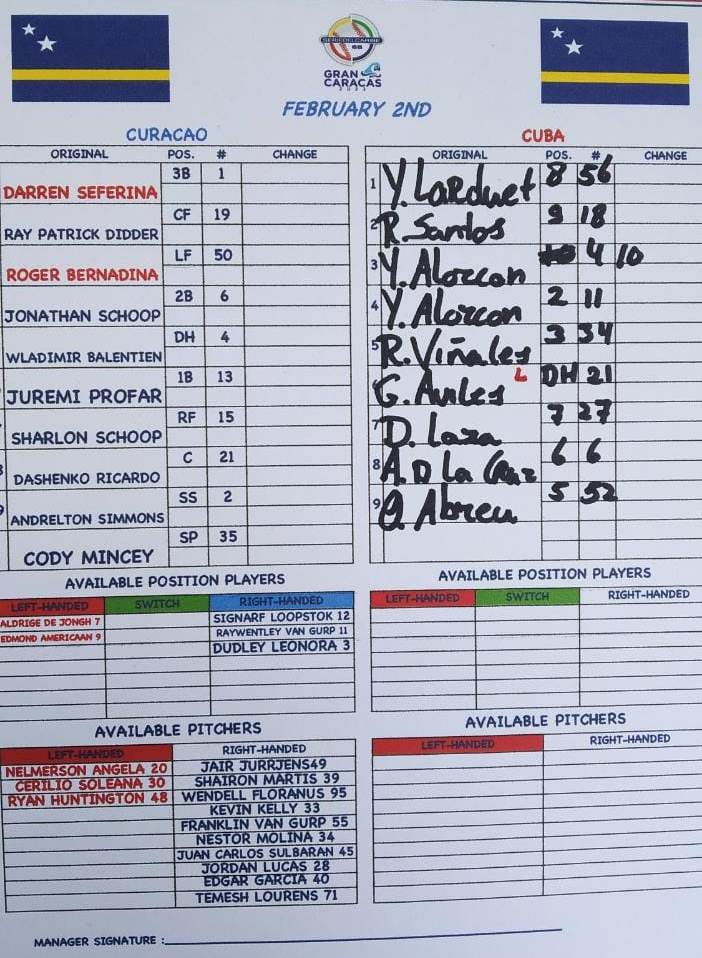 SERIE DEL CARIBE
GRAN
CARACAS
2023
FEBRUARY 2ND
CURACAO
ORIGINAL POS. # CHANGE
DARREN SEFERINA 3B 1
RAY PATRICK DIDDER CF 19
ROGER BERNADINA LF 50
JONATHAN SCHOOP 2B 6
WLADIMIR BALENTIEN DH 4
JUREMI PROFAR 1B 13
SHARLON SCHOOP RF 15
DASHENKO RICARDO C 21
ANDRELTON SIMMONS SS 2
CODY MINCEY SP 35
AVAILABLE POSITION PLAYERS
LEFT-HANDED SWITCH RIGHT-HANDED
ALDRIGE DE JONGH 7 SIGNARF LOOPSTOK 12
EDMOND AMERICAAN 9 RAYWENTLEY VAN GURP 11
DUDLEY LEONORA 3
AVAILABLE PITCHERS
LEFT-HANDED RIGHT-HANDED
NELMERSON ANGELA 20 JAIR JURRJENS49
CERILIO SOLEANA 30 SHAIRON MARTIS 39
RYAN HUNTINGTON 48 WENDELL FLORANUS 95
KEVIN KELLY 33
FRANKLIN VAN GURP 55
NESTOR MOLINA 34
JUAN CARLOS SULBARAN 45
JORDAN LUCAS 28
EDGAR GARCIA 40
TEMESH LOURENS 71
MANAGER SIGNATURE :
CUBA
ORIGINAL POS. # CHANGE
1 Y. Larduet 8 56
2 R. Santos 9 18
3 Y. Alorcon 4 10
4 Y. Alorcon 2 11
5 R. Viñales 3 34
G. Aviles L DH 21
7 D. Laza 7 27
8 A. D La Cruz 6 6
9 O. Abreu 5 52
AVAILABLE POSITION PLAYERS
LEFT-HANDED SWITCH RIGHT-HANDED
AVAILABLE PITCHERS
LEFT-HANDED RIGHT-HANDED